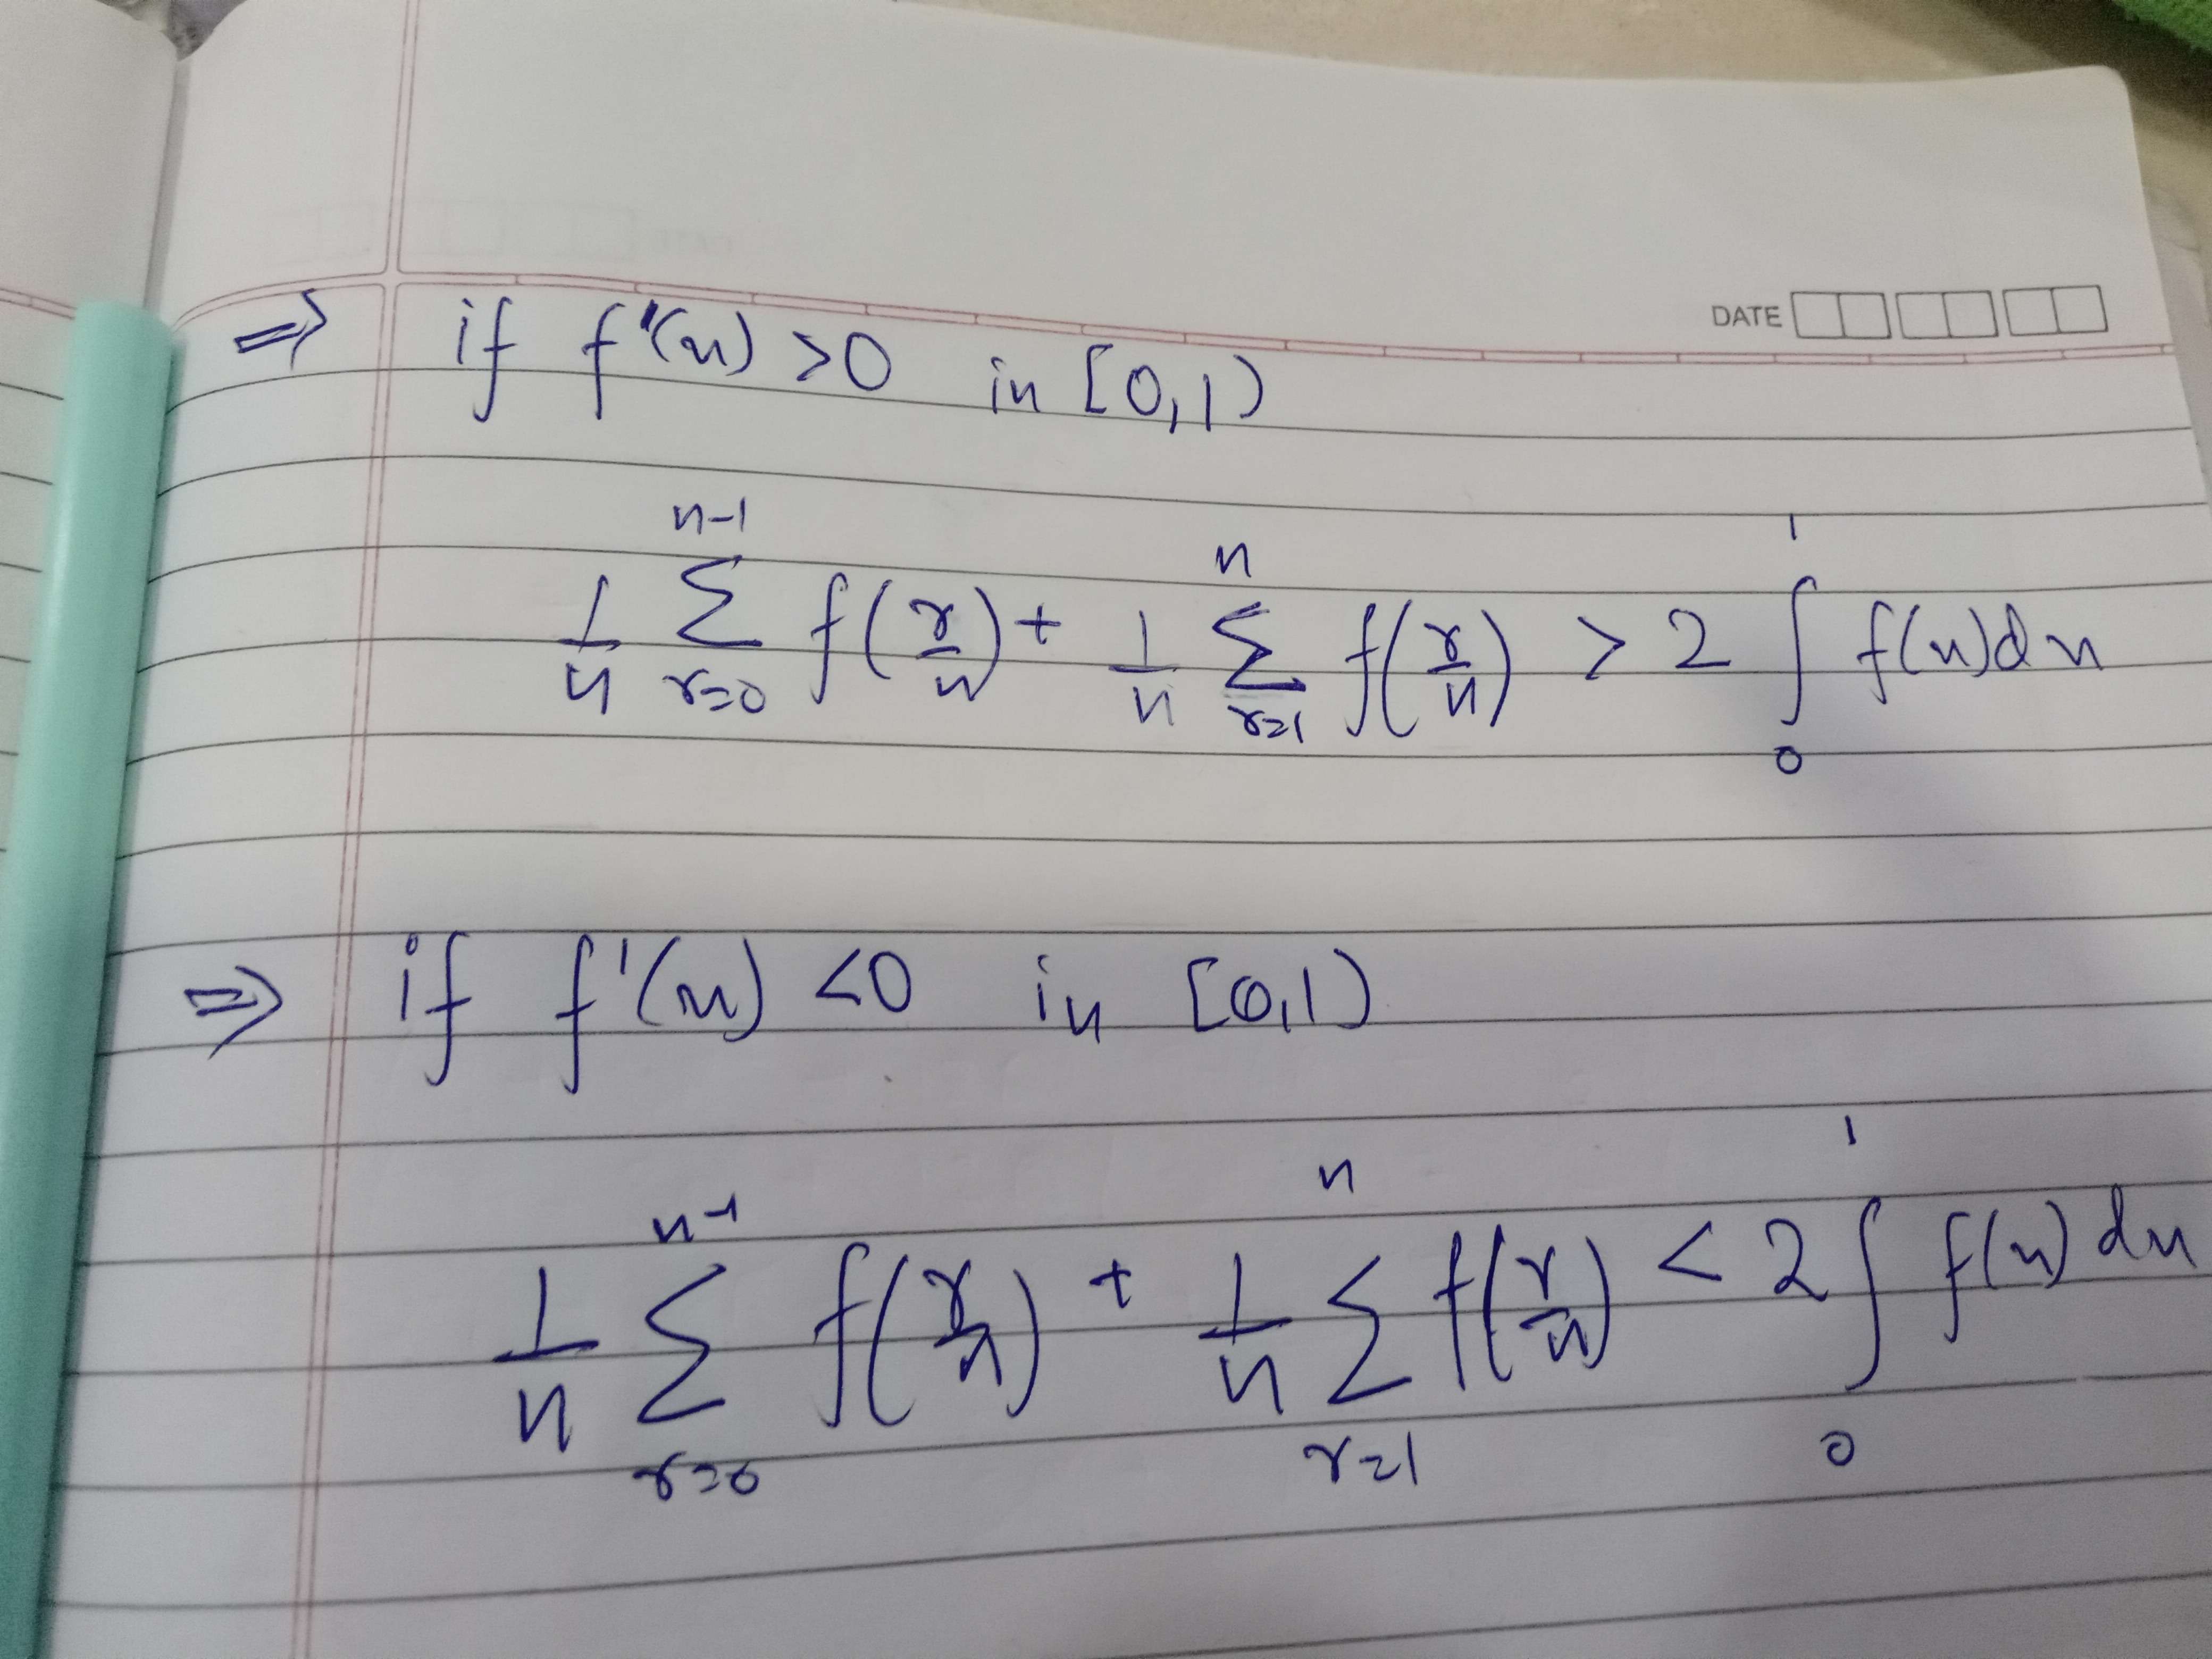 DATE
⇒ if f''(x) > 0 in [0,1)
1/n ∑_{r=0}^{n-1} f(r/n) + 1/n ∑_{r=1}^{n} f(r/n) > 2 ∫_0^1 f(x)dx
⇒ if f'(x) < 0 in [0,1)
1/n ∑_{r=0}^{n-1} f(r/n) + 1/n ∑_{r=1}^{n} f(r/n) < 2 ∫_0^1 f(x)dx